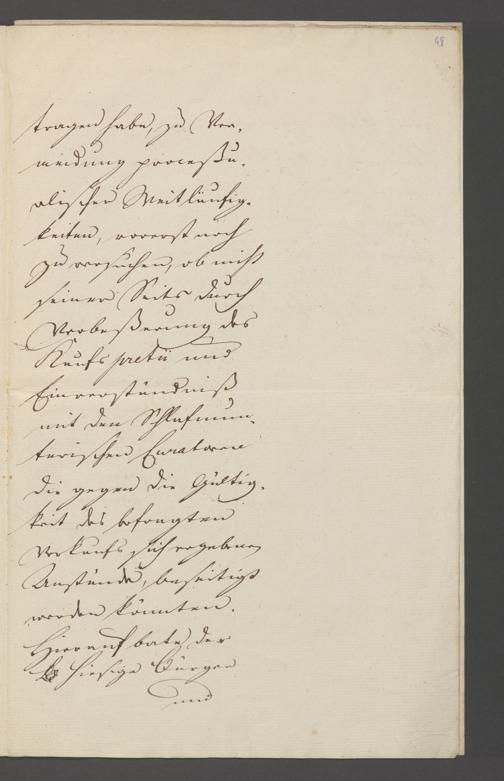 48
tragen habe, zu Ver,
meidung proceßu,
alischer Weitläufig,
keiten, vorerst noch
zu versuchen, ob nicht
seiner Seits durch
Verbeßerung des
Kaufs pretii und
Einverständniß
mit den
Curatoren
die gegen die Gültig,
keit des befragten
Verkaufs sich ergebenen
Anstände, beseitigt
werden könnten.
Hierauf bate der
hiesige Bürger
und